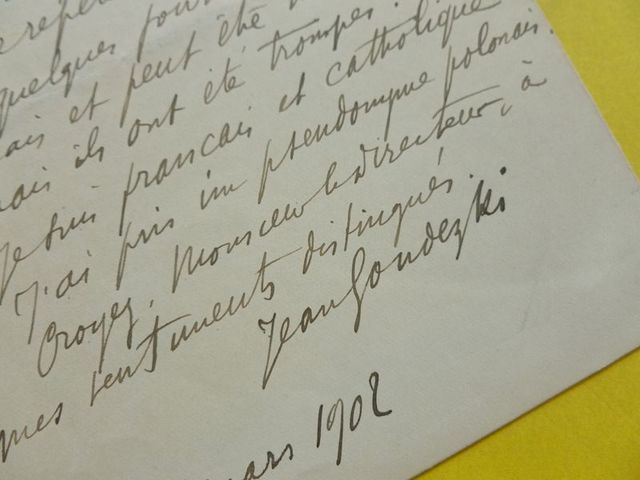 quelques jours
ais et peut être
mais ils ont été trompés.
Je suis français et catholique
J'ai pris un pseudonyme polonais.
Croyez, Monsieur le directeur, à
mes sentiments distingués.
Jean Goudezki
mars 1902